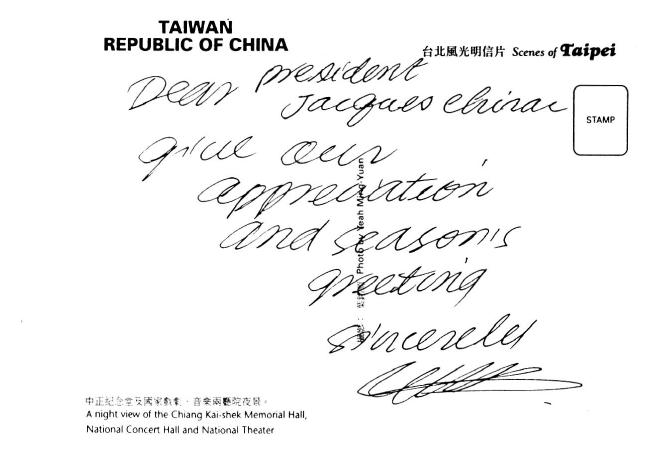 TAIWAN
REPUBLIC OF CHINA
台北風光明信片 Scenes of Taipei
STAMP
Dear president
Jacques Chirac
give our
appreciation
and season's
greeting
sincerely
Photo by Yeah Ming-Yuan
中正紀念堂及國家戲劇、音樂兩廳院夜景。
A night view of the Chiang Kai-shek Memorial Hall,
National Concert Hall and National Theater